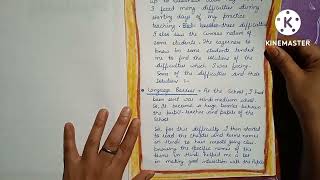 I faced many difficulties during
starting days of my practice
teaching. But besides these difficulties
I also saw the curious nature of
some students. The eagerness to
know in some students tended
me to find the solutions of the
difficulties which I was facing.
Some of the difficulties and their
solution :-
Language Barrier - As the School, I had
been sent was Hindi medium school
So, it became a huge barrier between
the pupil-teacher and pupils of the
School
So for this difficulty I then started
to read the chapters and terms names
in Hindi too before going class.
knowing the specific names of the
terms in Hindi helped me a lot
in making good interaction with the Pupils
KINEMASTER